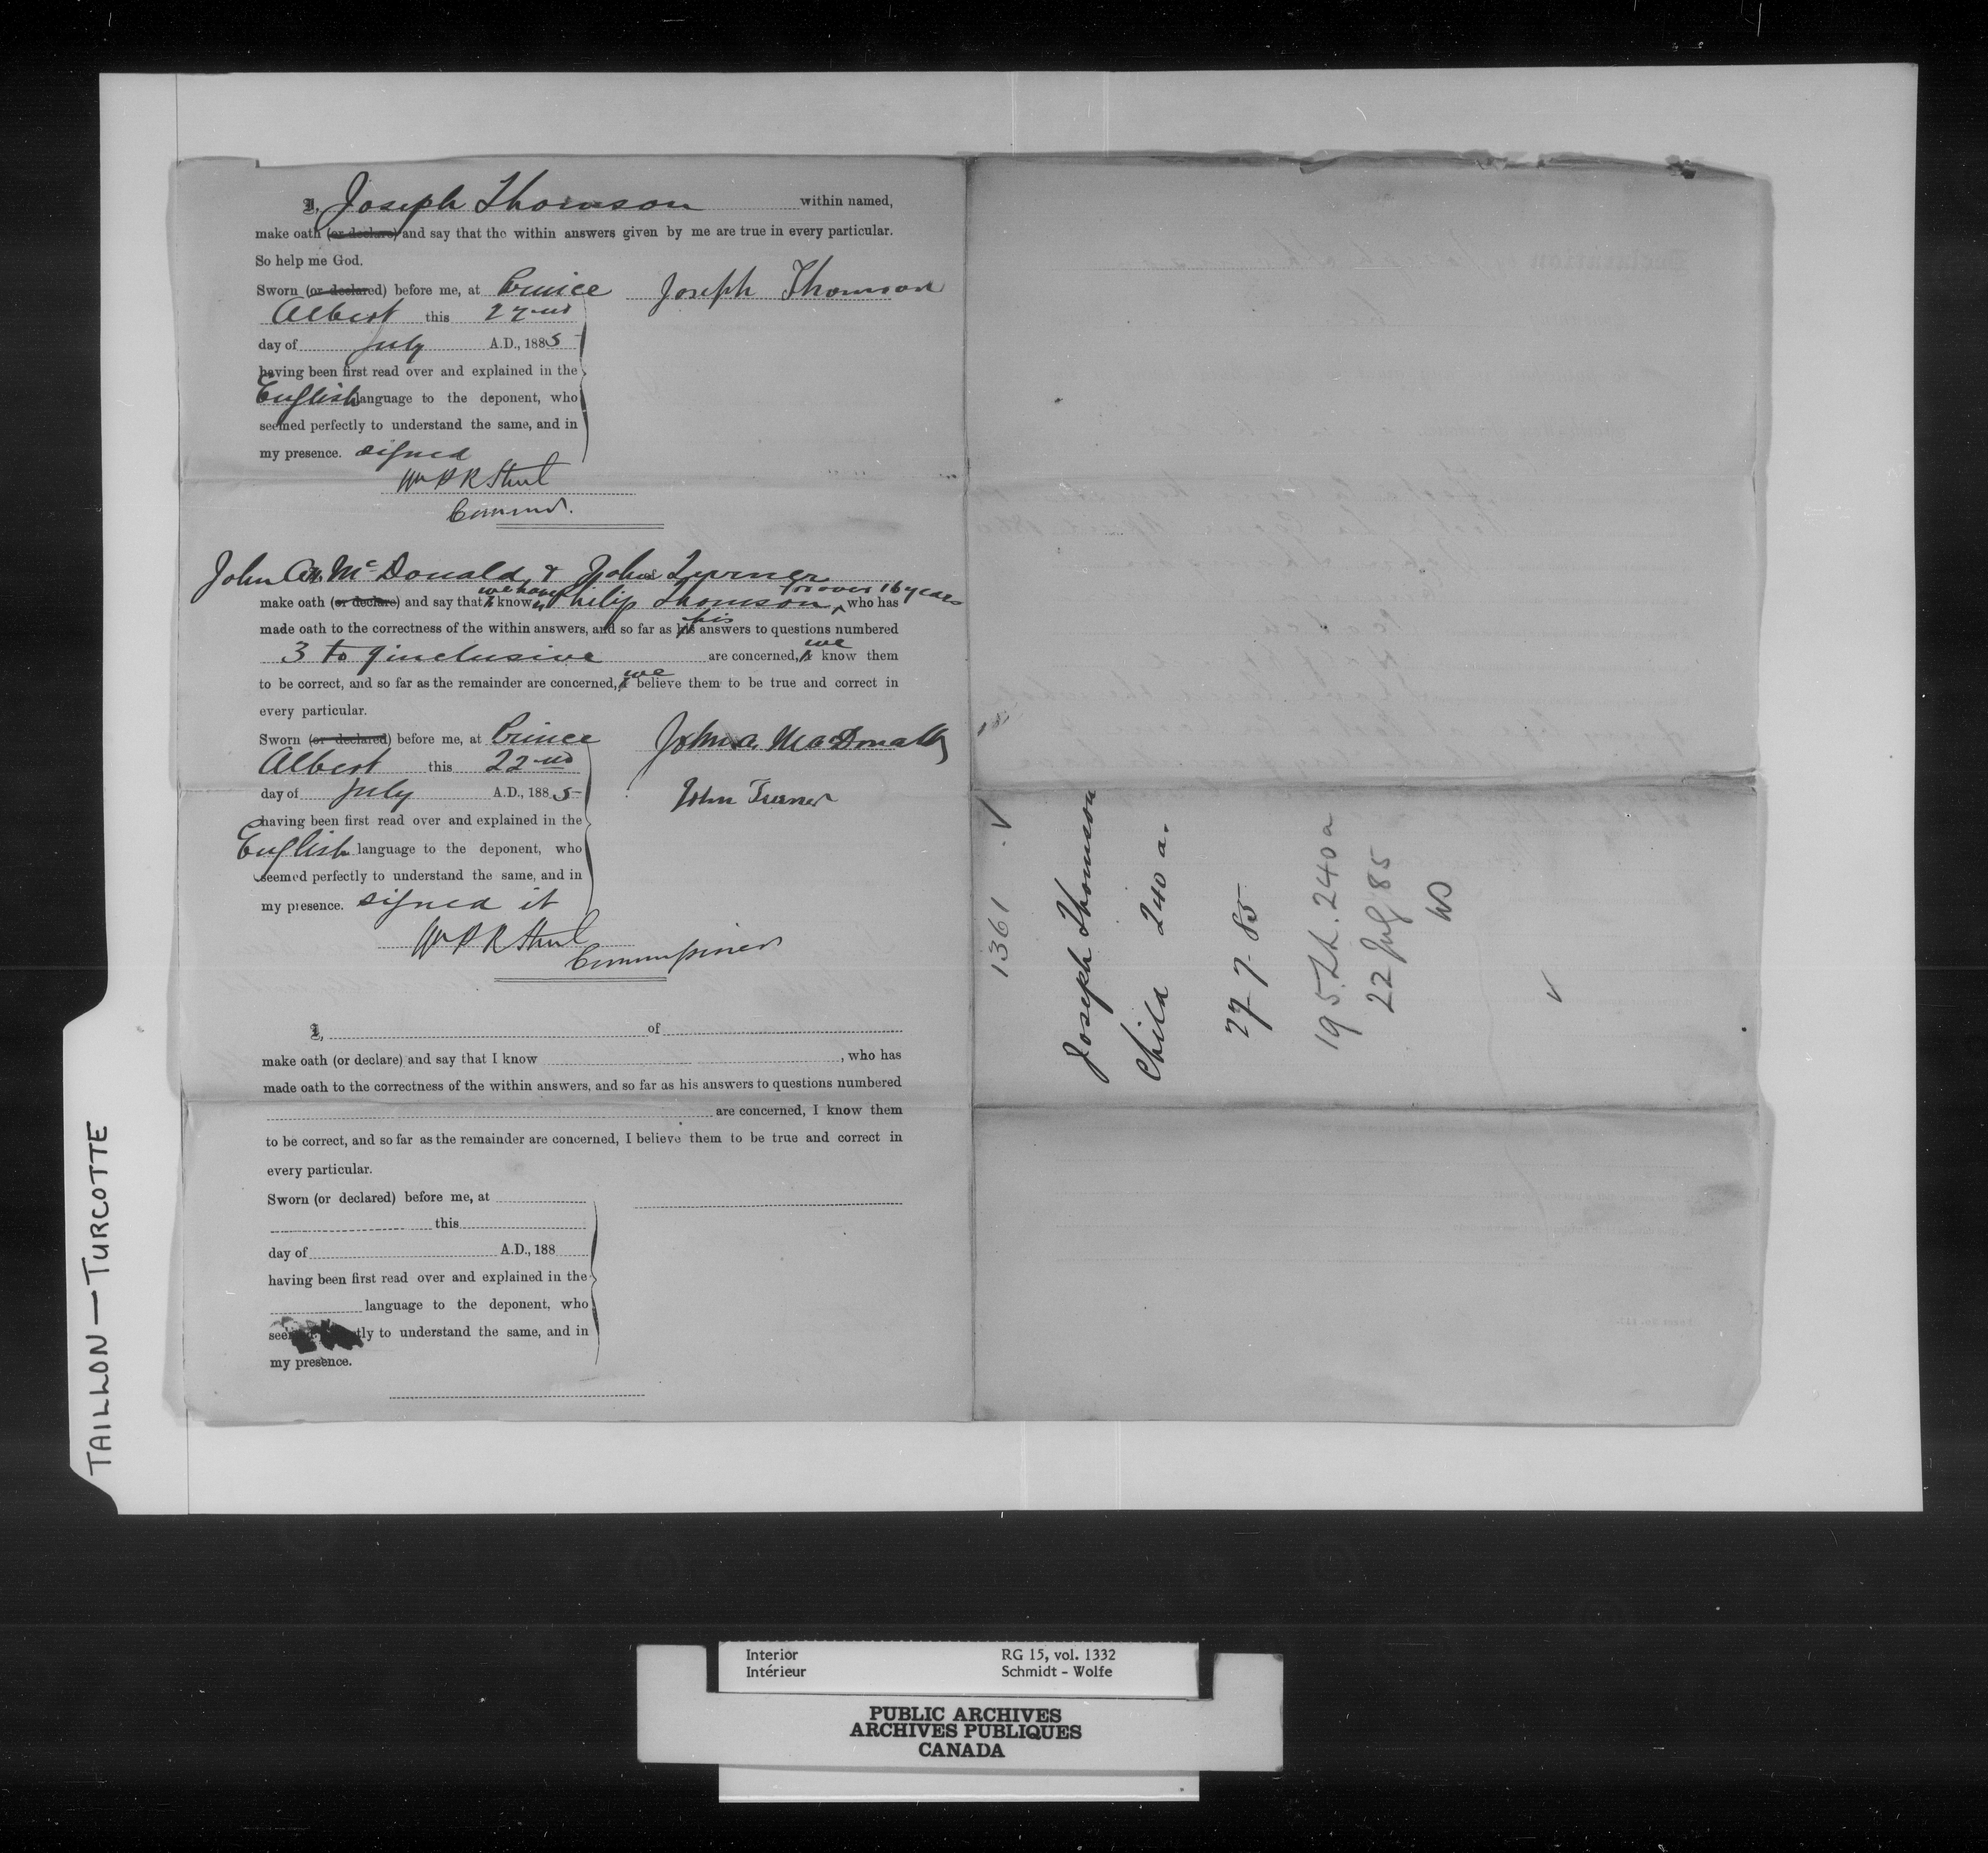 I, Joseph Thomson within named,
make oath (or declare) and say that the within answers given by me are true in every particular.
So help me God.
Sworn (or declared) before me, at Prince Joseph Thomson
Albert this 22nd
day of July A.D., 1885
having been first read over and explained in the
English language to the deponent, who
seemed perfectly to understand the same, and in
my presence. signed
Wm P R Street
Commr.
John A. McDonald & John Turner
make oath (or declare) and say that we have known Philip Thomson for over 16 years, who has
made oath to the correctness of the within answers, and so far as his answers to questions numbered
3 to 9 inclusive are concerned, we know them
to be correct, and so far as the remainder are concerned, we believe them to be true and correct in
every particular.
Sworn (or declared) before me, at Prince John A. MacDonald
Albert this 22nd
day of July A.D., 1885 John Turner
having been first read over and explained in the
English language to the deponent, who
seemed perfectly to understand the same, and in
my presence. signed it
Wm P R Street
Commissioner
I, of
make oath (or declare) and say that I know , who has
made oath to the correctness of the within answers, and so far as his answers to questions numbered
are concerned, I know them
to be correct, and so far as the remainder are concerned, I believe them to be true and correct in
every particular.
Sworn (or declared) before me, at
this
day of A.D., 188
having been first read over and explained in the
language to the deponent, who
tly to understand the same, and in
my presence.
1361
Joseph Thomson
Child 240 a.
27-7-85
195. 240 a
22 July 85
TAILLON — TURCOTTE
Interior RG 15, vol. 1332
Intérieur Schmidt - Wolfe
PUBLIC ARCHIVES
ARCHIVES PUBLIQUES
CANADA